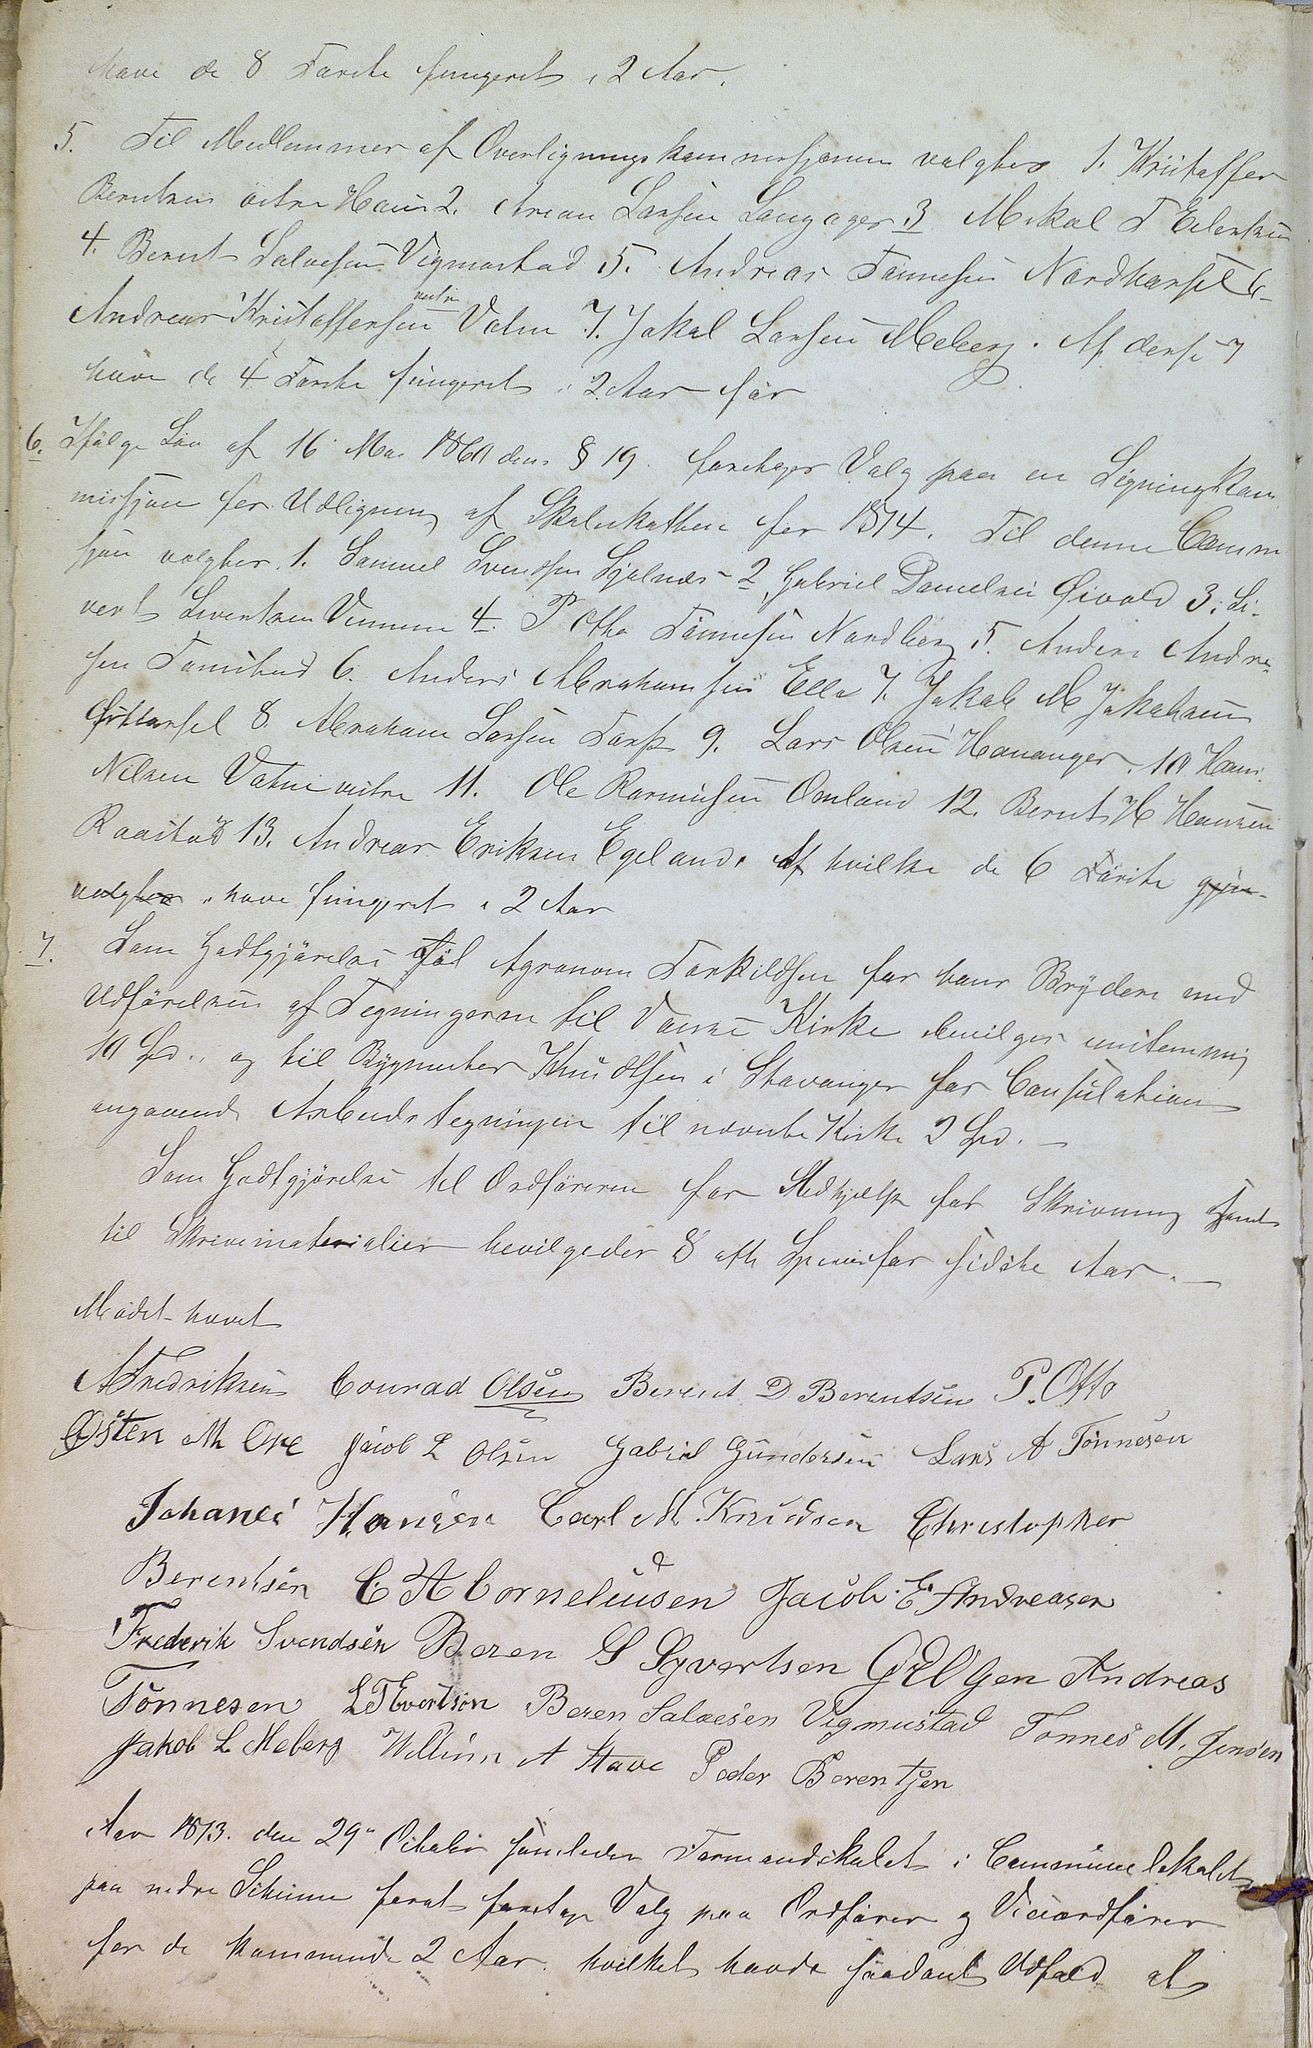 have de 8 Første fungeret i 2 Aar.
5. Til Medlemmer af Overligningskommisjonen valgtes 1. Kristoffer
Berntsen östre Haus 2. Arean Larsen Langager 3 Mikal T Eilertsen
4. Bernt Salvesen Vigmostad 5. Andreas Tønnesen Nordhassel 6
Andreas Kristoffersen vestre Vatne 7. Jakob Larsen Meberg. Af disse 7
have de 4 Første fungeret i 2 Aar før
6. Ifølge Lov af 16 Mai 1860 dens § 19. foretoges Valg paa en Ligningskom
misjon for Udligning af Skoleskatten for 1874. Til denne Comm
sjon valgtes 1. Samuel Svendsen 2 Gabriel Danielsen Østvold 3. Si-
vert Sivertsen 4. P Otto Tønnesen Nordberg 5. Anders Andre
sen Tomstad 6. Anders Abrahamsen Elle 7. Jakob M Jakobsen
Østhassel 8 Abraham Larsen Torp 9. Lars Olsen Hananger. 10 Hans
Nilsen Vatne vestre 11. Ole Rasmusen Omland 12. Bernt H Hansen
Raastad 13. Andreas Eriksen Egeland. Af hvilke de 6 Første gjen-
valgtes have fungeret i 2 Aar
7. Som Godtgjørelse til Agronom Torkildsen for hans Bryderi med
Udførelsen af Tegningerne til Vanse Kirke bevilges enstemmig
10 Spd. og til Bygmester Knudsen i Stavanger for Consulation
angaaende Arbeidstegningen til nævnte Kirke 2 Spd. —
Som Godtgjørelse til Ordføreren for Medhjælp for Skrivning samt
til Skrivematerialier bevilgedes 8 otte Specier for sidste Aar. —
Mødet hævet
A Fredriksen Conrad Olsen Berent D Berentsen P. Otto
Østen M Ore Jacob L Olsen Gabriel Gundersen Lars A Tønnesen
Johanes Hansen Carl M. Knudsen Christopher
Berentsen C A Corneliusen Jacob E. Andreasen
Frederik Svendsen Beren S Syvertsen Andreas
Tønnesen L T Evertsen Beren Salvesen Vigmustad Tønnes M. Jensen
Jakob L Meberg Willum A Stave Peder Berentsen
Aar 1873. den 29de Oktober samledes Formandskabet i Communelokalet
paa nedre Skeime forat foretage Valg paa Ordfører og Viceordfører
for de kommende 2 Aar. hvilket havde saadant Udfald at